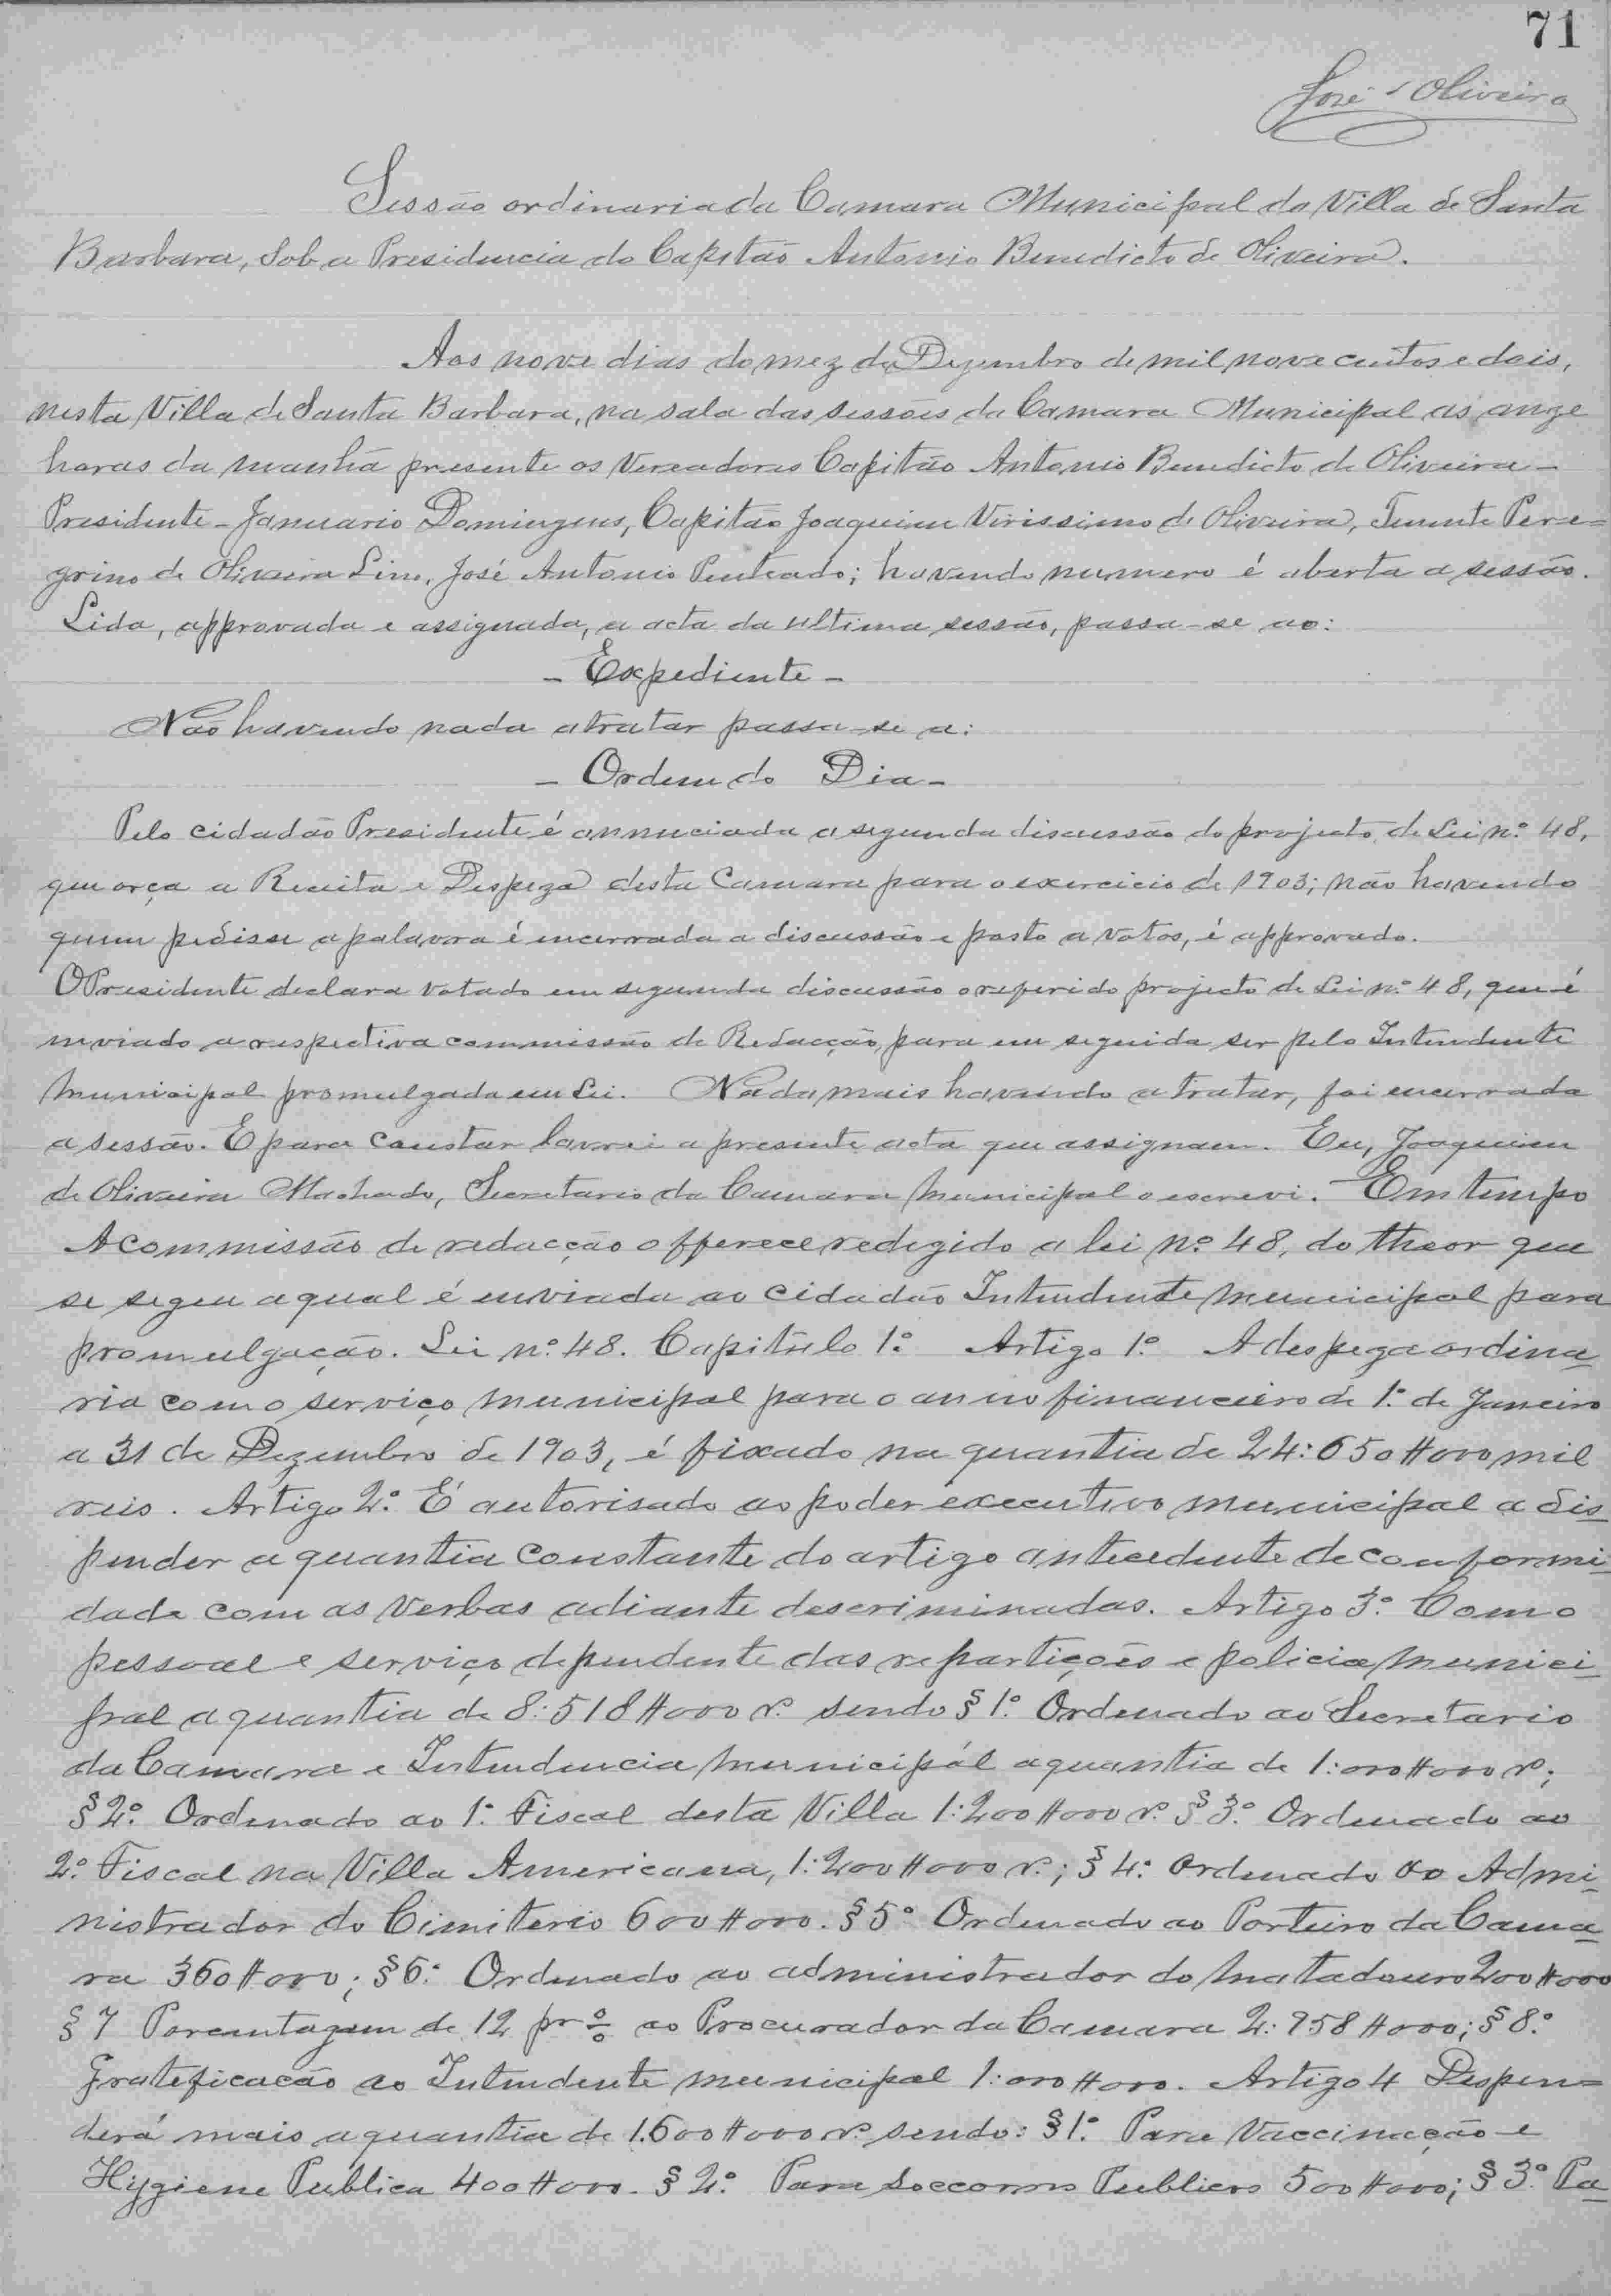 71
José d'Oliveira
Sessão ordinaria da Camara Municipal da Villa de Santa
Barbara, sob a Presidencia do Capitão Antonio Benedicto de Oliveira.
Aos nove dias do mez de Dezembro de mil nove centos e dois,
nesta Villa de Santa Barbara, na sala das sessões da Camara Municipal as onze
horas da manhã presente os Vereadores Capitão Antonio Benedicto de Oliveira -
Presidente - Januario Domingues, Capitão Joaquim Virissimo de Oliveira, Tenente Pere=
grino de Oliveira Lino, José Antonio Penteado; havendo numero é aberta a sessão.
Lida, approvada e assignada, a acta da ultima sessão, passa-se ao:
- Expediente -
Não havendo nada a tratar passa-se a:
- Ordem do Dia -
Pelo cidadão Presidente é annunciada a segunda discussão do projecto de Lei nº 48,
que orça a Receita e Despeza desta Camara para o exercicio de 1903; não havendo
quem pedisse a palavra é encerrada a discussão e posto a votos, é approvado.
O Presidente declara votado em segunda discussão o referido projecto de Lei nº 48, que é
inviado a respectiva commissão de Redacção, para em seguida ser pelo Intendente
Municipal promulgada em Lei. Nada mais havendo a tratar, foi encerrada
a sessão. E para constar lavrei a presente acta que assignam. Eu, Joaquim
de Oliveira Machado, Secretario da Camara Municipal o escrevi. Em tempo
A commissão de redacção offerece redigido a lei nº 48, do theor que
se segue a qual é enviada ao cidadão Intendente Municipal para
promulgação. Lei nº 48. Capitulo 1º Artigo 1º A despeza ordina
ria com o serviço municipal para o anno financeiro de 1º de Janeiro
a 31 de Dezembro de 1903, é fixado na quantia de 24:650$000 mil
reis. Artigo 2º É autorisado ao poder executivo municipal a dis
pender a quantia constante do artigo antecedente de conformi
dade com as verbas adiante descriminadas. Artigo 3º Com o
pessoal e serviço dependente das repartições e policia munici
pal a quantia de 8:518$000 rs. sendo § 1º Ordenado ao Secretario
da Camara e Intendencia Municipál a quantia de 1:000$000 rs;
§ 2º Ordenado ao 1º Fiscal desta Villa 1:200$000 rs. § 3º Ordenado ao
2º Fiscal na Villa Americana, 1:200$000 rs.; § 4º Ordenado ao Admi
nistrador do Cimiterio 600$000. § 5º Ordenado ao Porteiro da Cama
ra 360$000; § 6º Ordenado ao administrador do Matadouro 200$000
§ 7 Porcentagem de 12 pr % ao Procurador da Camara 2:958$000; § 8º
Gratificacão ao Intendente municipal 1:000$000. Artigo 4 Despen=
derá mais a quantia de 1.600$000 rs. sendo: § 1º Para Vaccinação e
Hygiene Publica 400$000. § 2º Para Soccorros Publicos 500$000; § 3º Pa